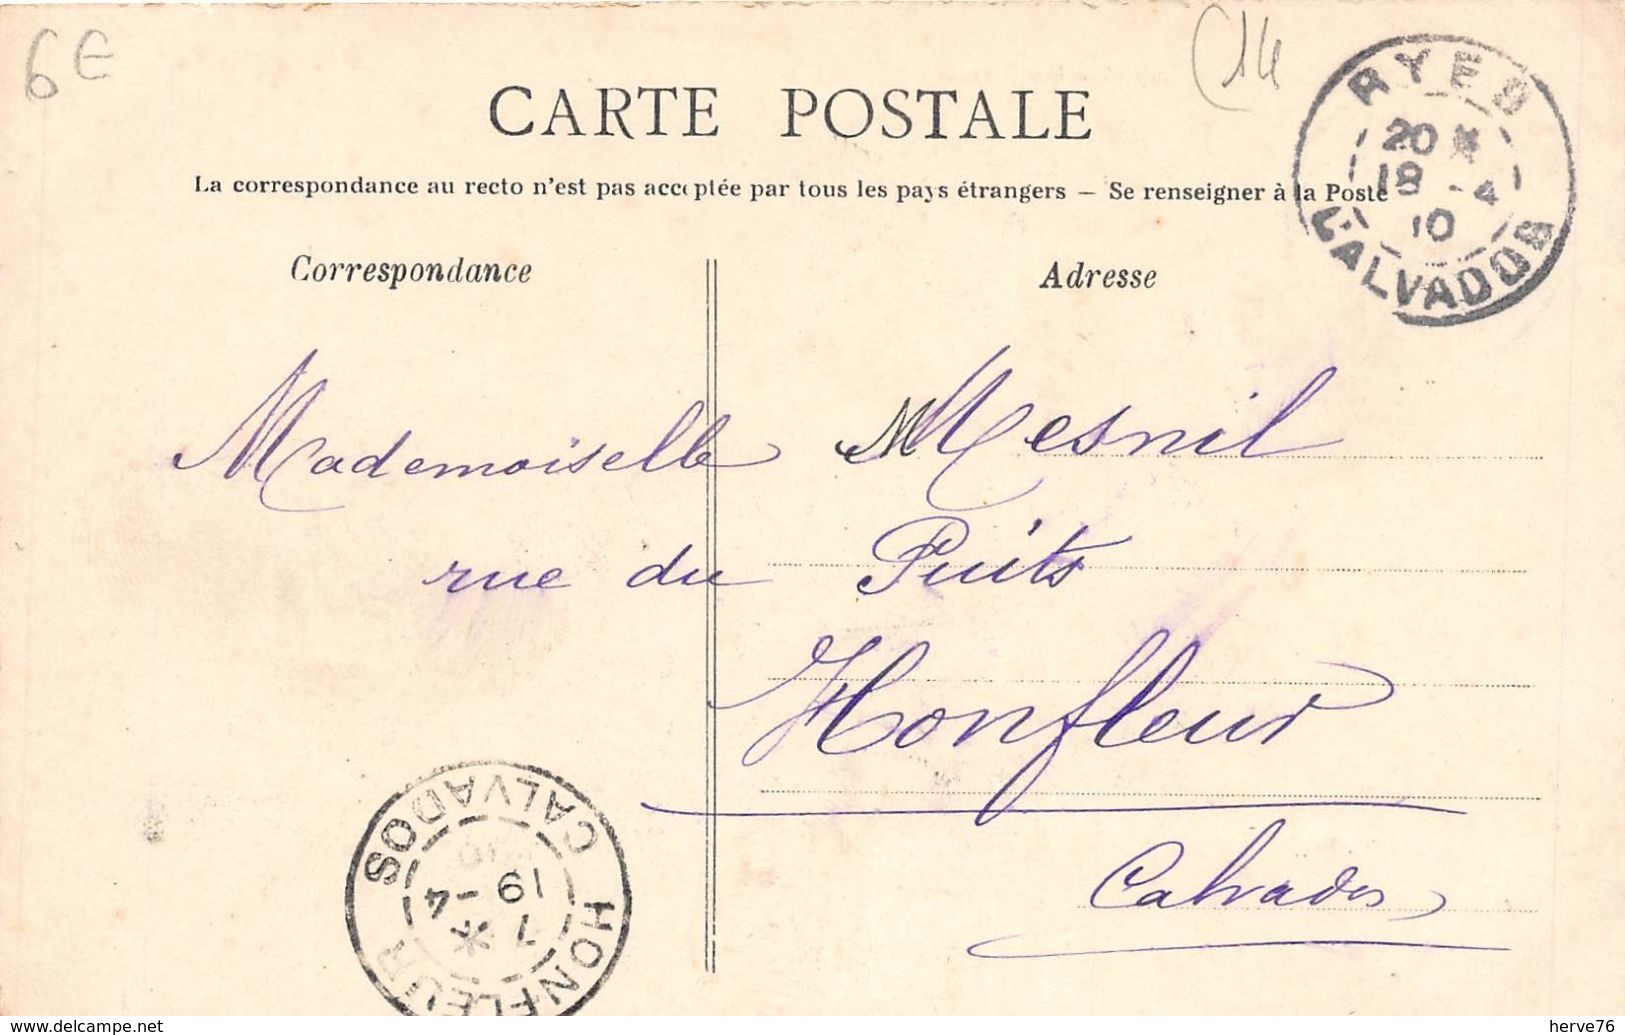 6€
C14
CARTE POSTALE
La correspondance au recto n'est pas acceptée par tous les pays étrangers — Se renseigner à la Poste
RYES
20 *
18 -4
10
CALVADOS
Correspondance
Adresse
Mademoiselle M Mesnil
rue du Puits
Honfleur
Calvados
HONFLEUR
7 *
19 -4
10
CALVADOS
www.delcampe.net
herve76